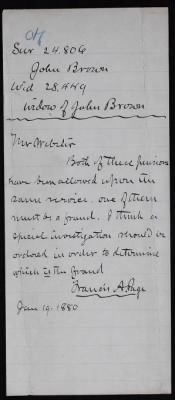 Sur 24,806
John Brown
Wid 28,449
Widow of John Brown
Mr Webster
Both of these pensions
have been allowed upon the
same service. one of them
must be a fraud. I think a
special investigation should be
ordered in order to determine
which is the fraud
Francis A. Page
Jan 19. 1880